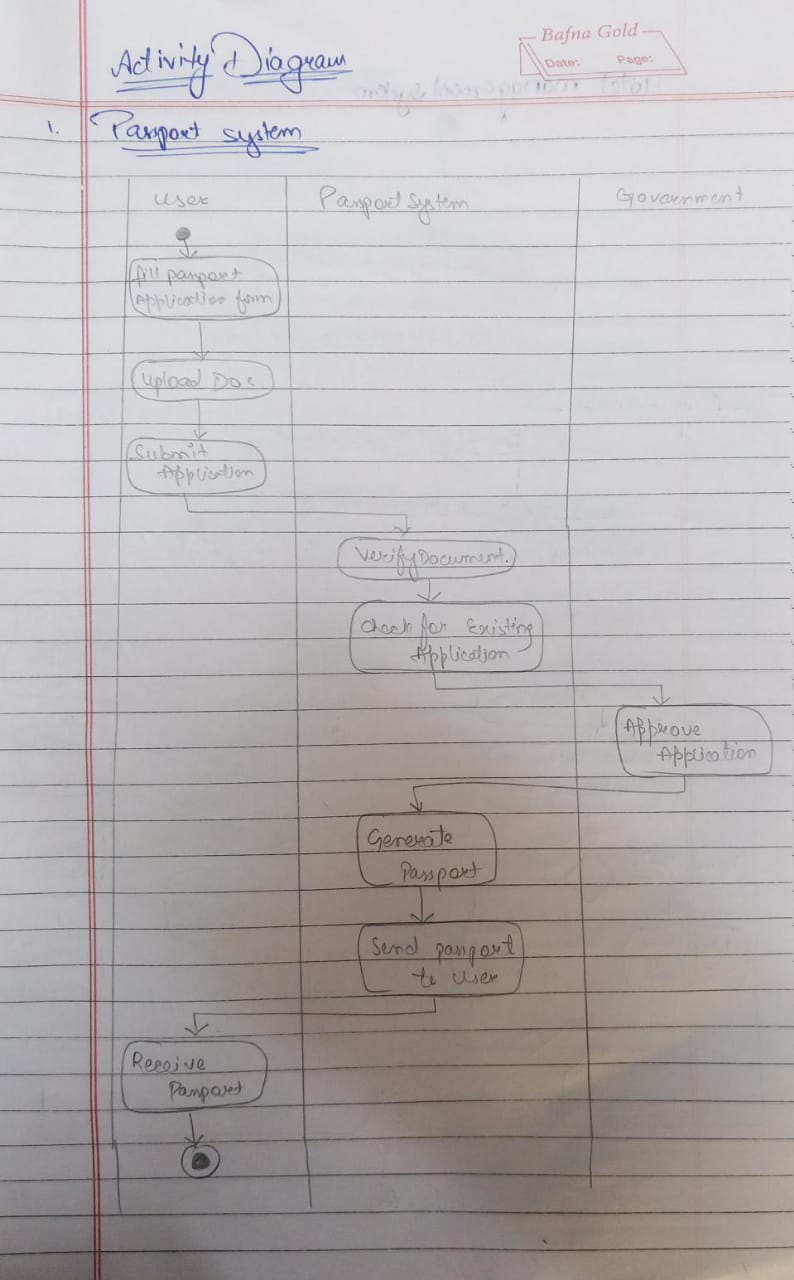 Bafna Gold
Date: Page:
Activity Diagram
1. Passport system
User Passport System Government
fill passport
Application form
Upload Doc
Submit
Application
Verify Document.
Check for Existing
Application
Approve
Application
Generate
Passport
Send passport
to User
Receive
Passport